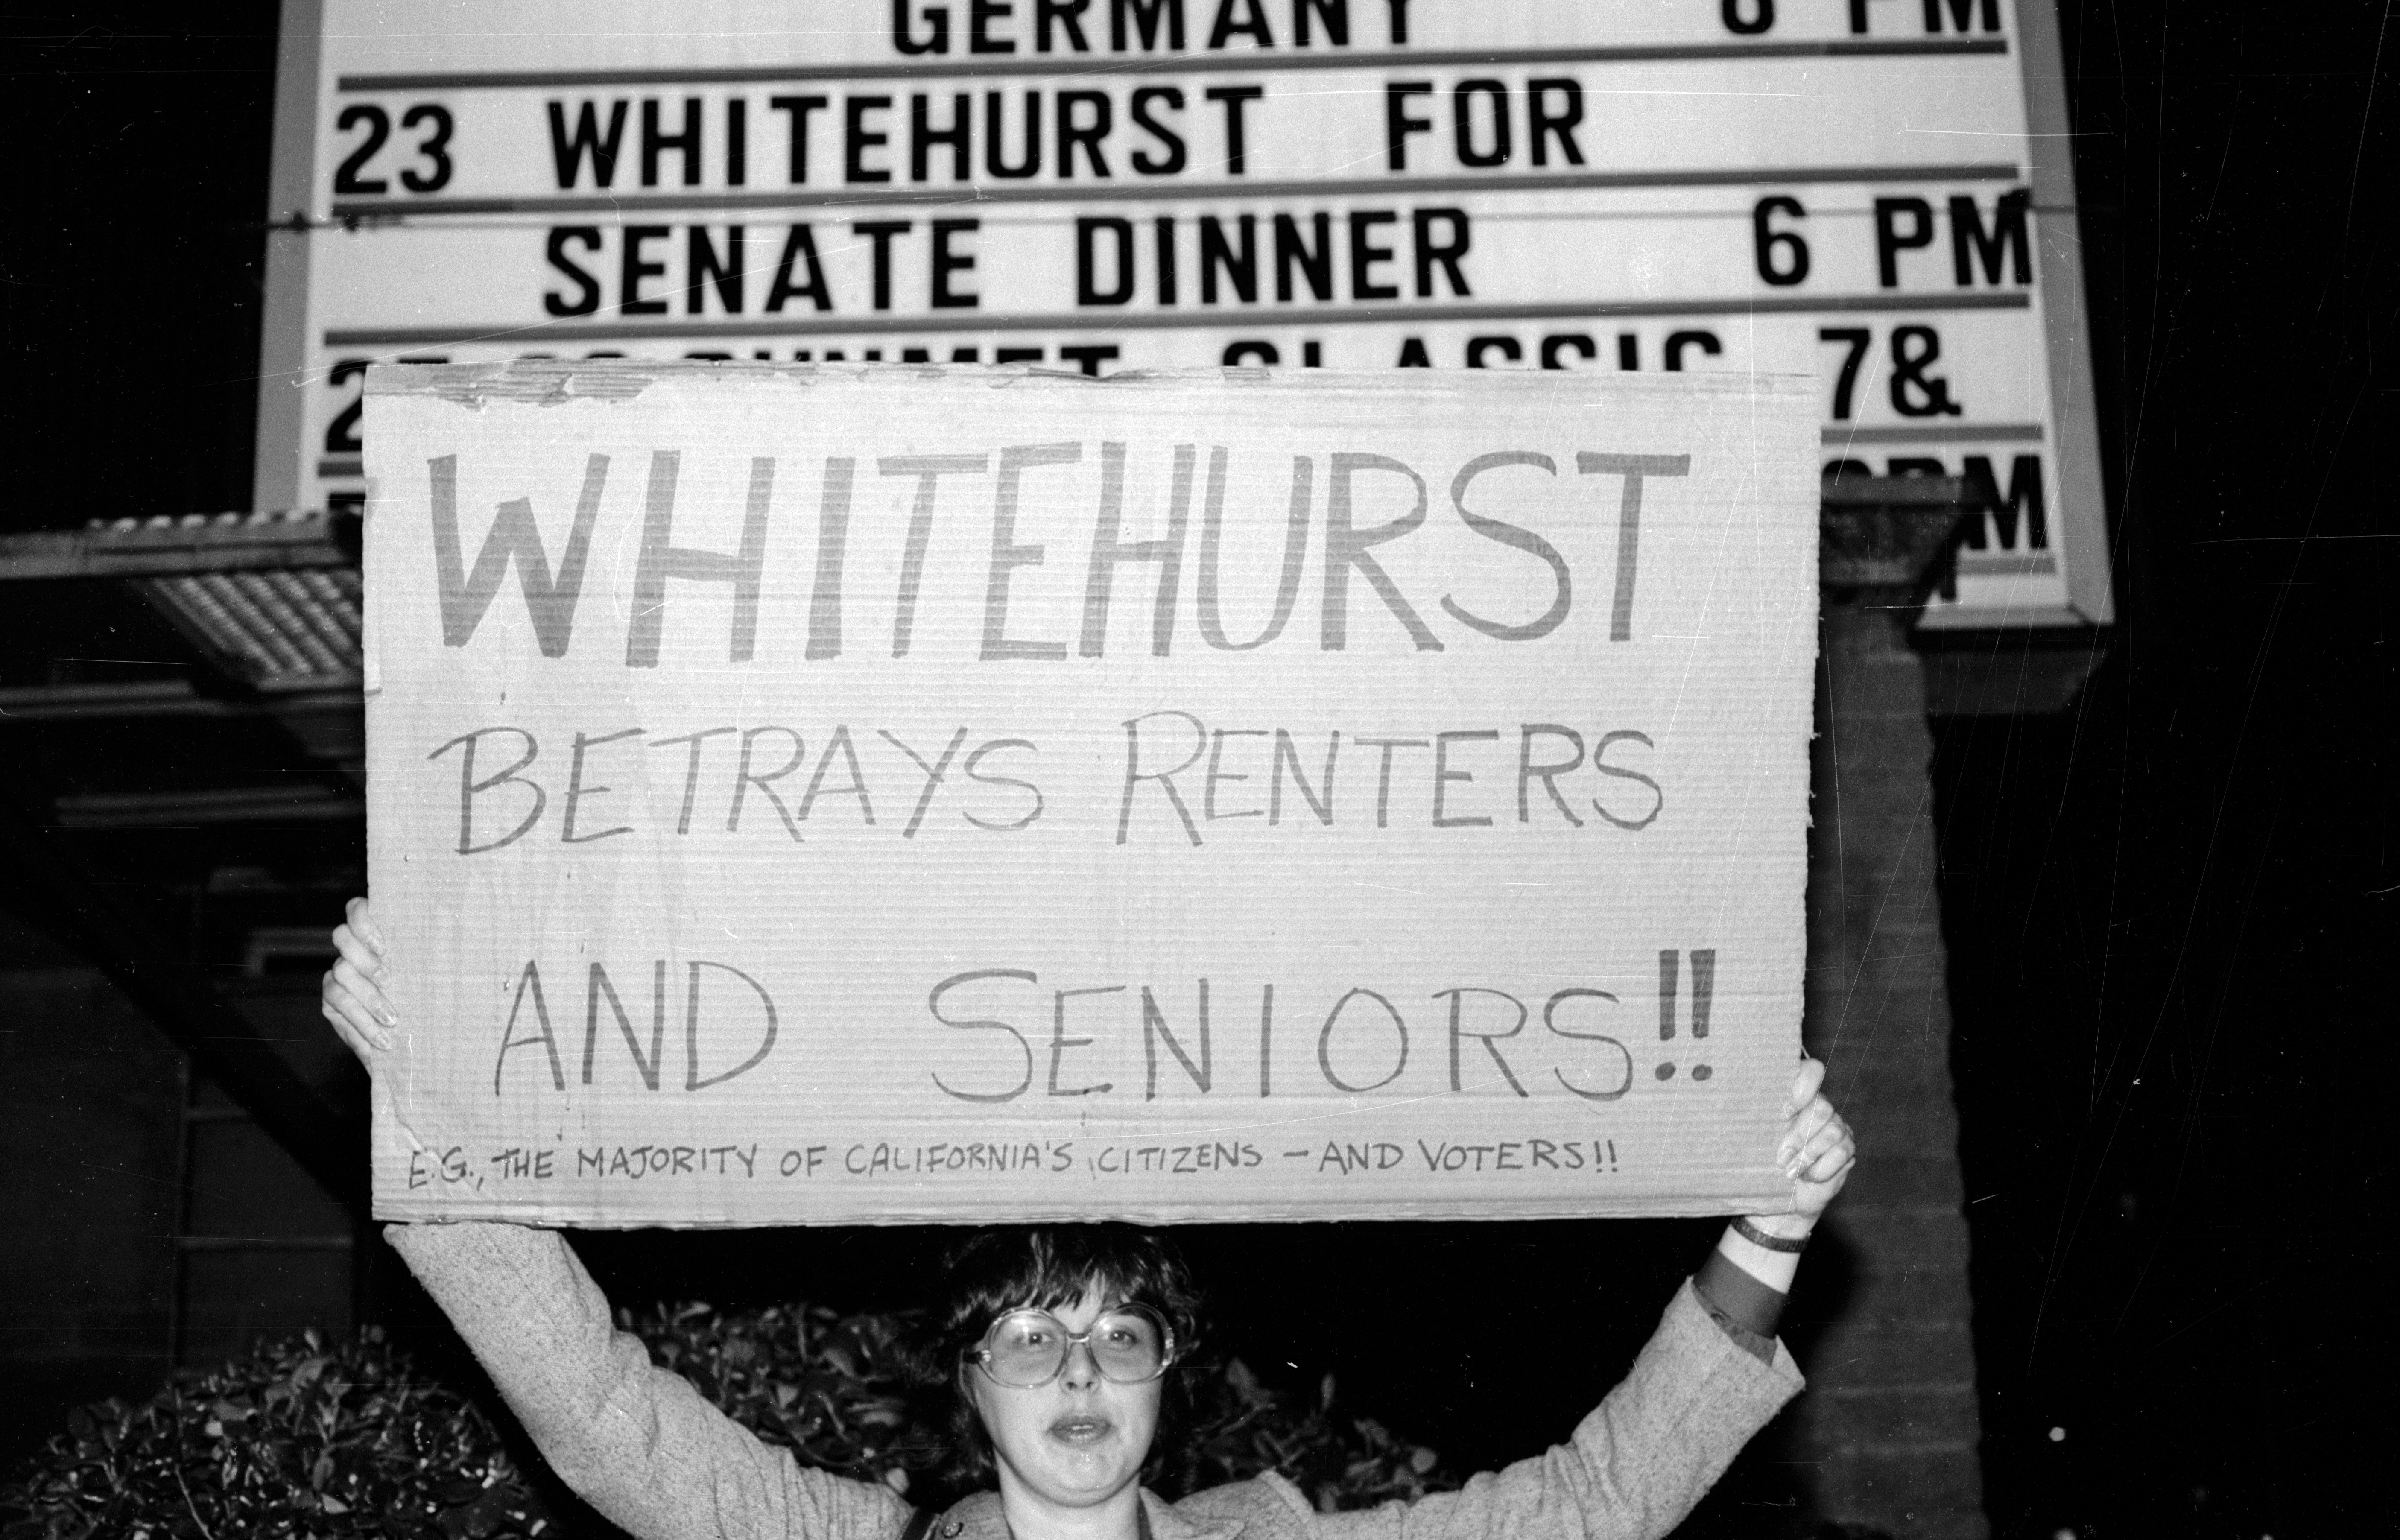 GERMANY 8 PM
23 WHITEHURST FOR
SENATE DINNER 6 PM
CLASSIC 7&
PM
WHITEHURST
BETRAYS RENTERS
AND SENIORS!!
E.G., THE MAJORITY OF CALIFORNIA'S CITIZENS – AND VOTERS!!